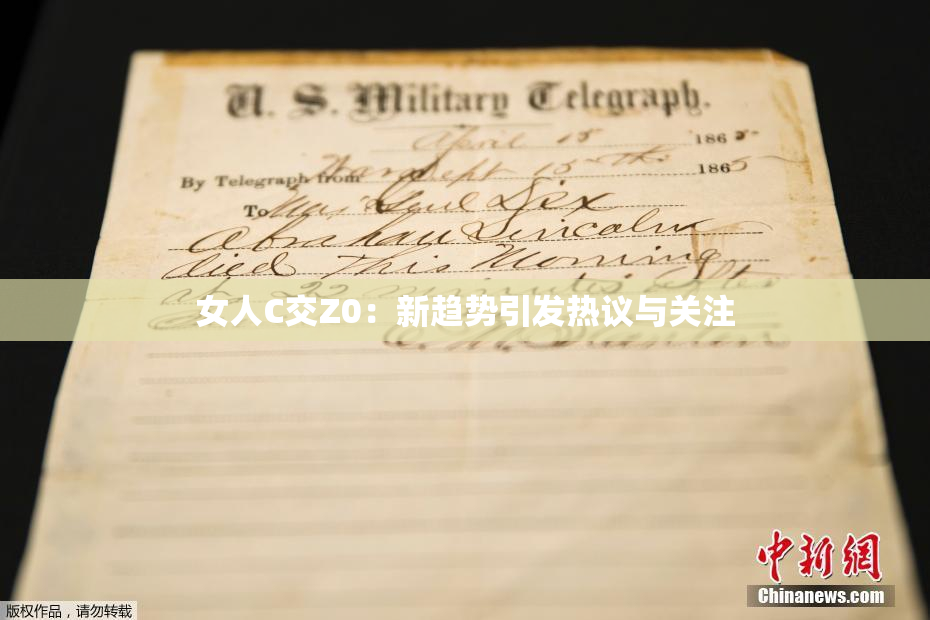 U. S. Military Telegraph.
April 15 1865
By Telegraph from War Dept 15th 1865
To Maj Genl Dix
Abraham Lincoln
died This Morning
at 22 minutes after
女人C交Z0：新趋势引发热议与关注
E. M. Stanton
中新网
Chinanews.com
版权作品，请勿转载